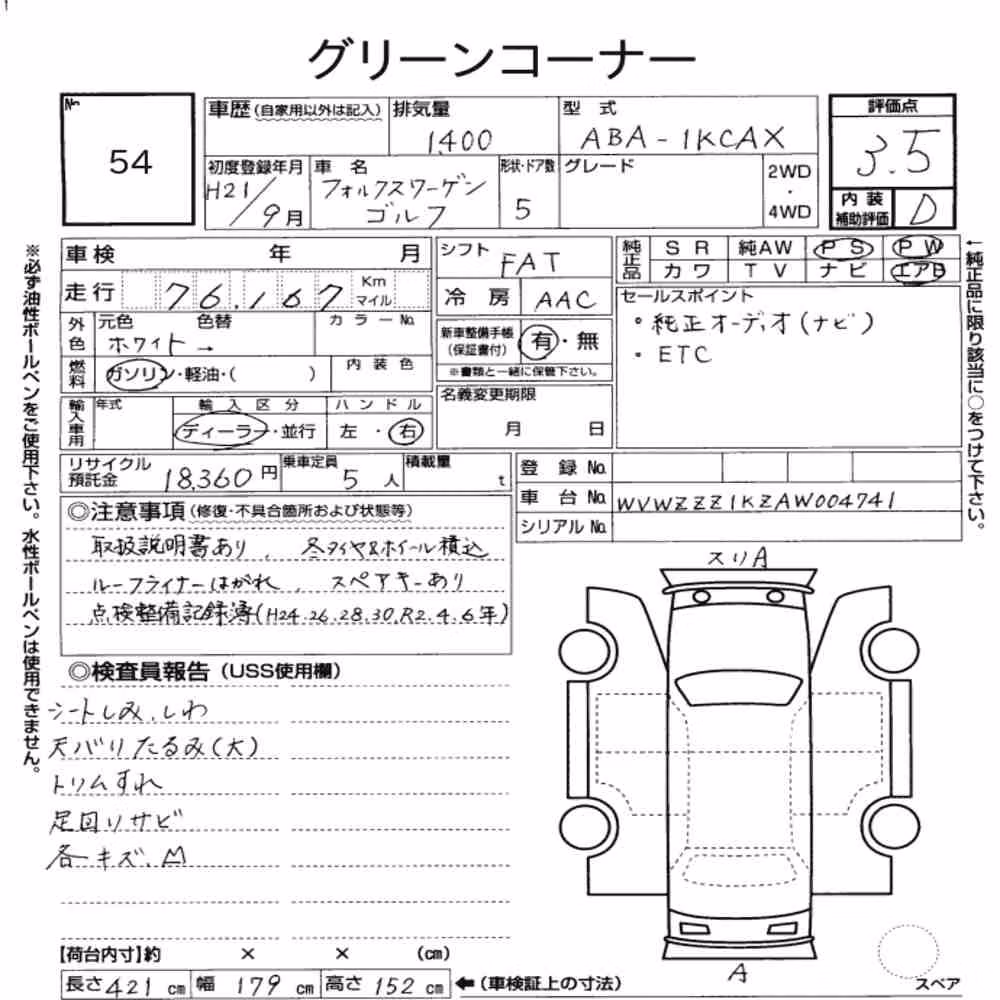 グリーンコーナー
No. 54
車歴(自家用以外は記入) 排気量 1,400 型 式 ABA-1KCAX 評価点 3.5
初度登録年月 H21/9月 車 名 フォルクスワーゲン ゴルフ 形状・ドア数 5 グレード 2WD・4WD 内装補助評価 D
車検 年 月 シフト FAT 純正品 SR 純AW PS PW
カワ TV ナビ エアB
走行 76,167 Km マイル 冷 房 AAC
セールスポイント
・純正オーディオ(ナビ)
・ETC
外色 元色 ホワイト → 色替 カラーNo. 新車整備手帳(保証書付) 有・無
※書類と一緒に保管下さい。
燃料 ガソリン・軽油・( ) 内装色
名義変更期限 月 日
輸入車用 年式 輸入区分 ディーラー・並行 ハンドル 左・右
リサイクル預託金 18,360円 乗車定員 5人 積載量 t
登録No.
車台No. WVWZZZ1KZAW004741
シリアルNo.
◎注意事項(修復・不具合箇所および状態等)
取扱説明書あり、冬タイヤ&ホイール積込
ルーフライナーはがれ、スペアキーあり
点検整備記録簿(H24.26.28.30.R2.4.6年)
◎検査員報告(USS使用欄)
シートしみ、しわ
天バリたるみ(大)
トリムすれ
足回りサビ
各キズ、M
スリA
A
スペア
【荷台内寸】約 × × (cm)
長さ 421 cm 幅 179 cm 高さ 152 cm ←(車検証上の寸法)
※必ず油性ボールペンをご使用下さい。水性ボールペンは使用できません。
←純正品に限り該当に○をつけて下さい。